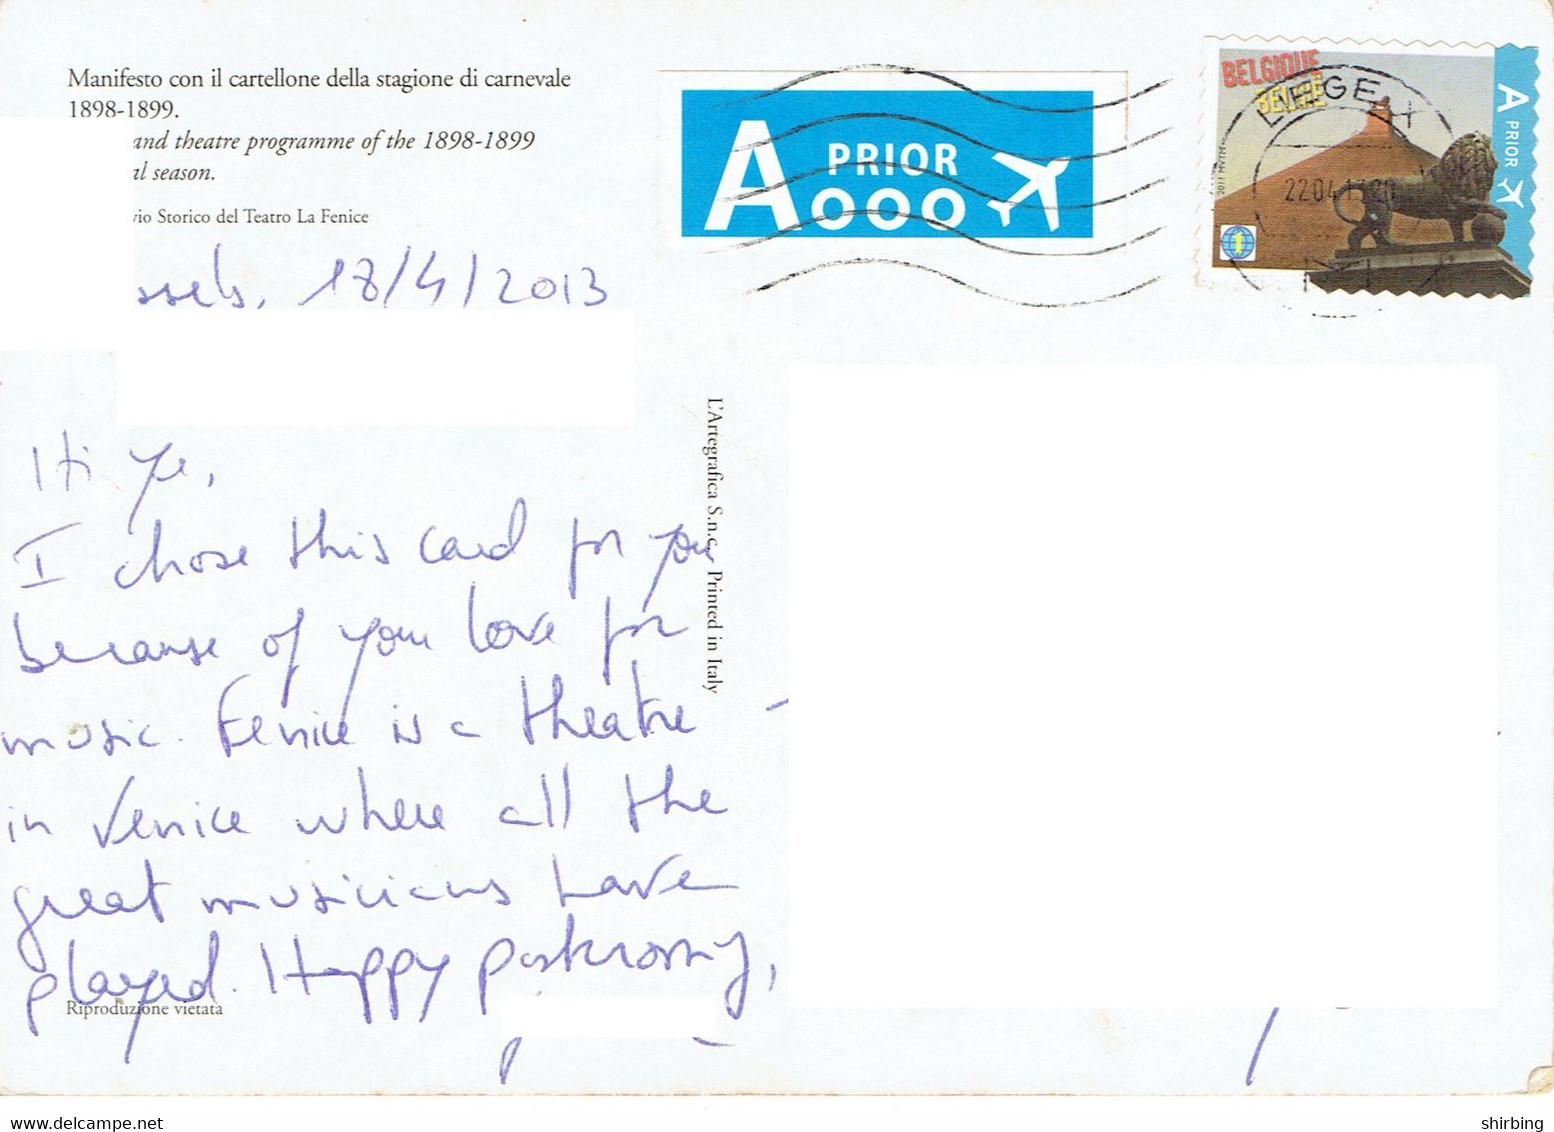 Manifesto con il cartellone della stagione di carnevale
1898-1899.
and theatre programme of the 1898-1899
al season.
vio Storico del Teatro La Fenice
ssels, 18/4/2013
Hi Ye,
I chose this card for you
because of your love for
music. Fenice is a theatre
in Venice where all the
great musicians have
played. Happy postcrossing,
Riproduzione vietata
L'Artegrafica S.n.c. Printed in Italy
A PRIOR
BELGIQUE
BELGIË
A PRIOR
2011 MVTM
1
LIEGE X
22.04.1 20
shirbing